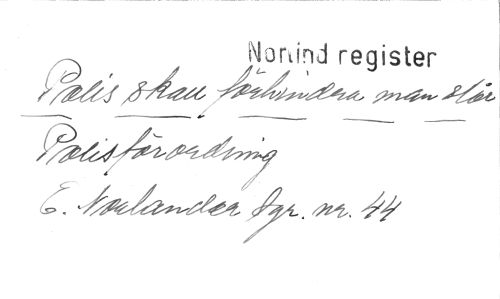 Norlind register
Polis skall förhindra man slår
Polisförordning
E. Norlander Sgr. nr. 44